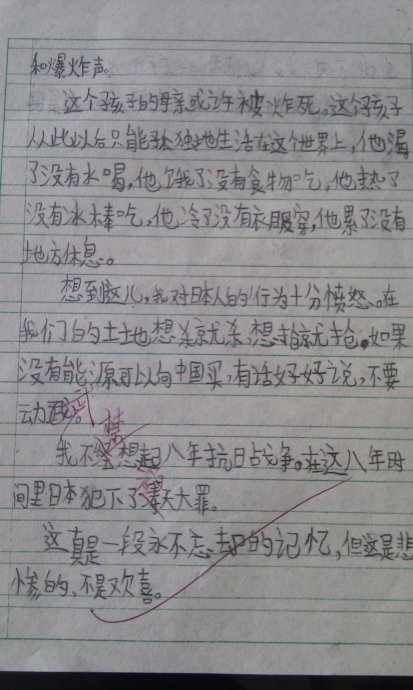 和爆炸声。
这个孩子的母亲或许被炸死。这个孩子
从此以后只能孤独地生活在这个世界上,他渴
了没有水喝,他饿了没有食物吃。他热了
没有冰棒吃,他冷了没有衣服穿,他累了没有
地方休息。
想到这儿,我对日本人的行为十分愤怒。在
我们的土地想杀就杀,想抢就抢。如果
没有能源可以向中国买,有话好好说,不要
动武。
我不禁想起八年抗日战争。在这八年时
间里日本犯下了天大罪。
这真是一段永不忘却的记忆,但这是悲
惨的,不是欢喜。